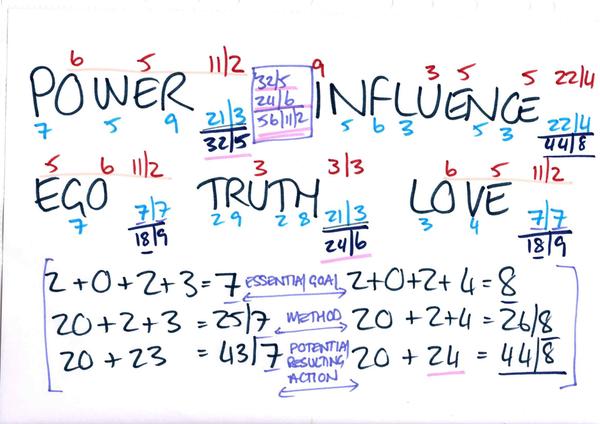 6 5 11/2 9 3 5 5 22/4
POWER 32/5 INFLUENCE
24/6
56/11/2
7 5 9 21/3 5 6 3 5 3 22/4
32/5 44/8
5 6 11/2 3 3/3 6 5 11/2
EGO TRUTH LOVE
7 7/7 2 9 2 8 21/3 3 4 7/7
18/9 24/6 18/9
2+0+2+3=7 ESSENTIAL GOAL 2+0+2+4=8
20+2+3 =25/7 METHOD 20 +2+4=26/8
20 + 23 = 43/7 POTENTIAL RESULTING ACTION 20 + 24 = 44/8